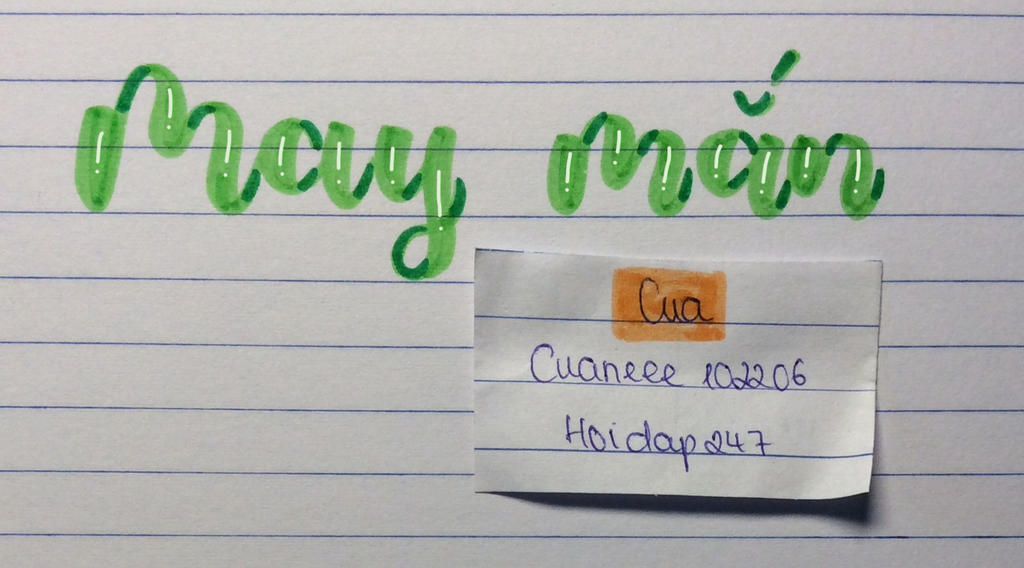 May mắn
Cua
Cuaneee 102206
Hoidap247